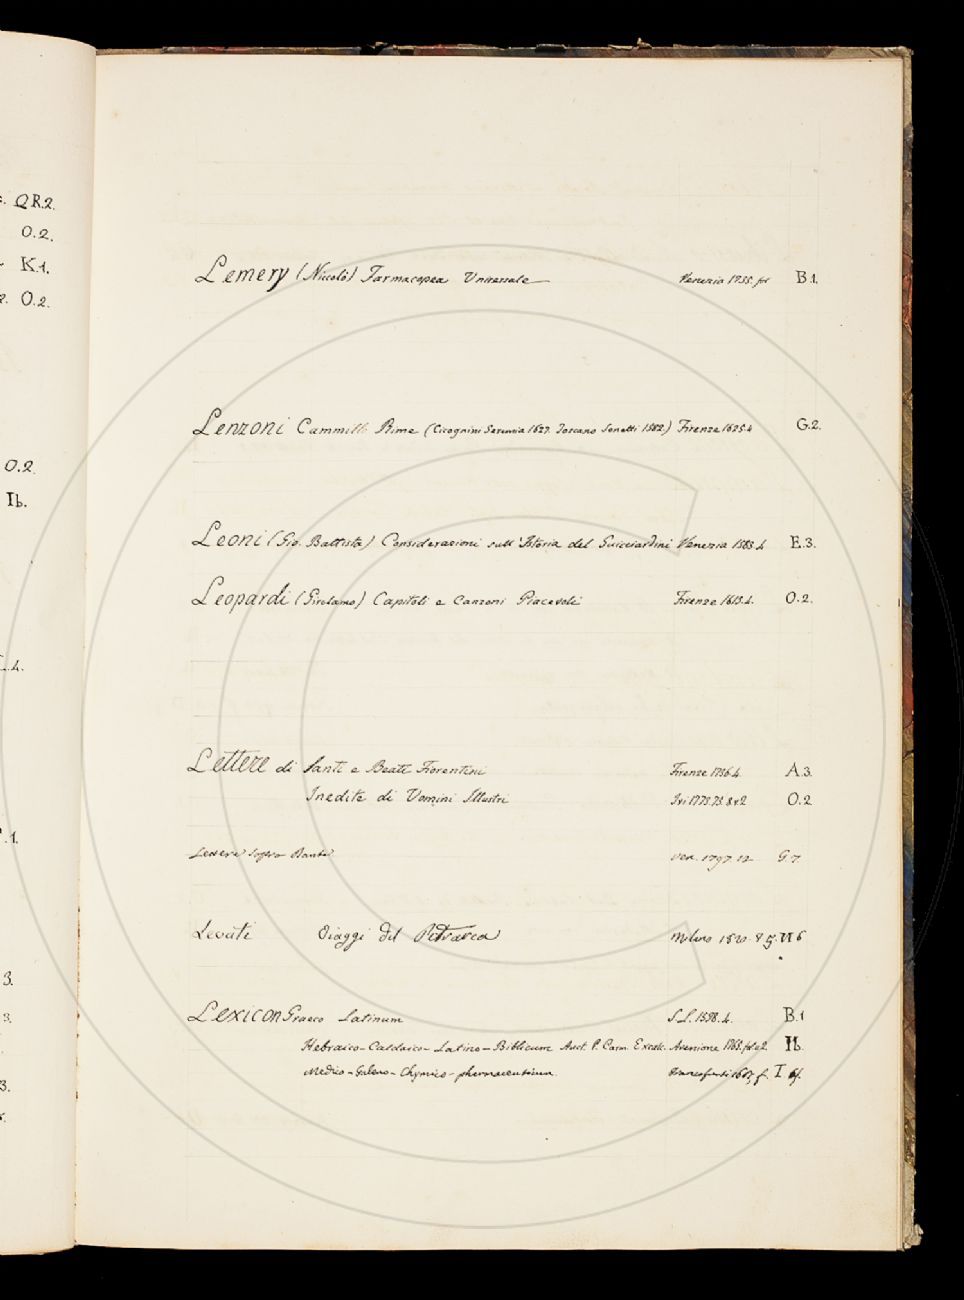 QR.2.
O.2.
K.1.
2. O.2.
O.2.
Ib.
L.4.
1.
3.
3.
3.
Lemery (Nicolò) Farmacopea Universale Venezia 1735. fol B.1.
Lenzoni Cammillo Rime (Cicognini 1627. Toscano Sonetti 1582.) Firenze 1625.4 G.2.
Leoni (Gio. Battista) Considerazioni sull'Istoria del Guicciardini Venezia 1583.4 E.3.
Leopardi (Girolamo) Capitoli e Canzoni Piacevoli Firenze 1613.4. O.2.
Lettere di Santi e Beati Fiorentini Firenze 1736.4. A.3.
Inedite di Uomini Illustri Ivi 1773.75. 8 v 2 O.2
Lettere sopra Dante Ven. 1797. 12 G.7
Levati Viaggi del Petrarca Milano 1820. 8 5. VI 6
Lexicon Graeco Latinum S.L. 1598. 4. B.1
Hebraico-Caldaico-Latino-Biblicum Auct. P. Carm. Excalc. Avenione 1765. fol v 2. Ib.
Medico-Galeno-Chymico-pharmaceuticum. Francofurti f. I